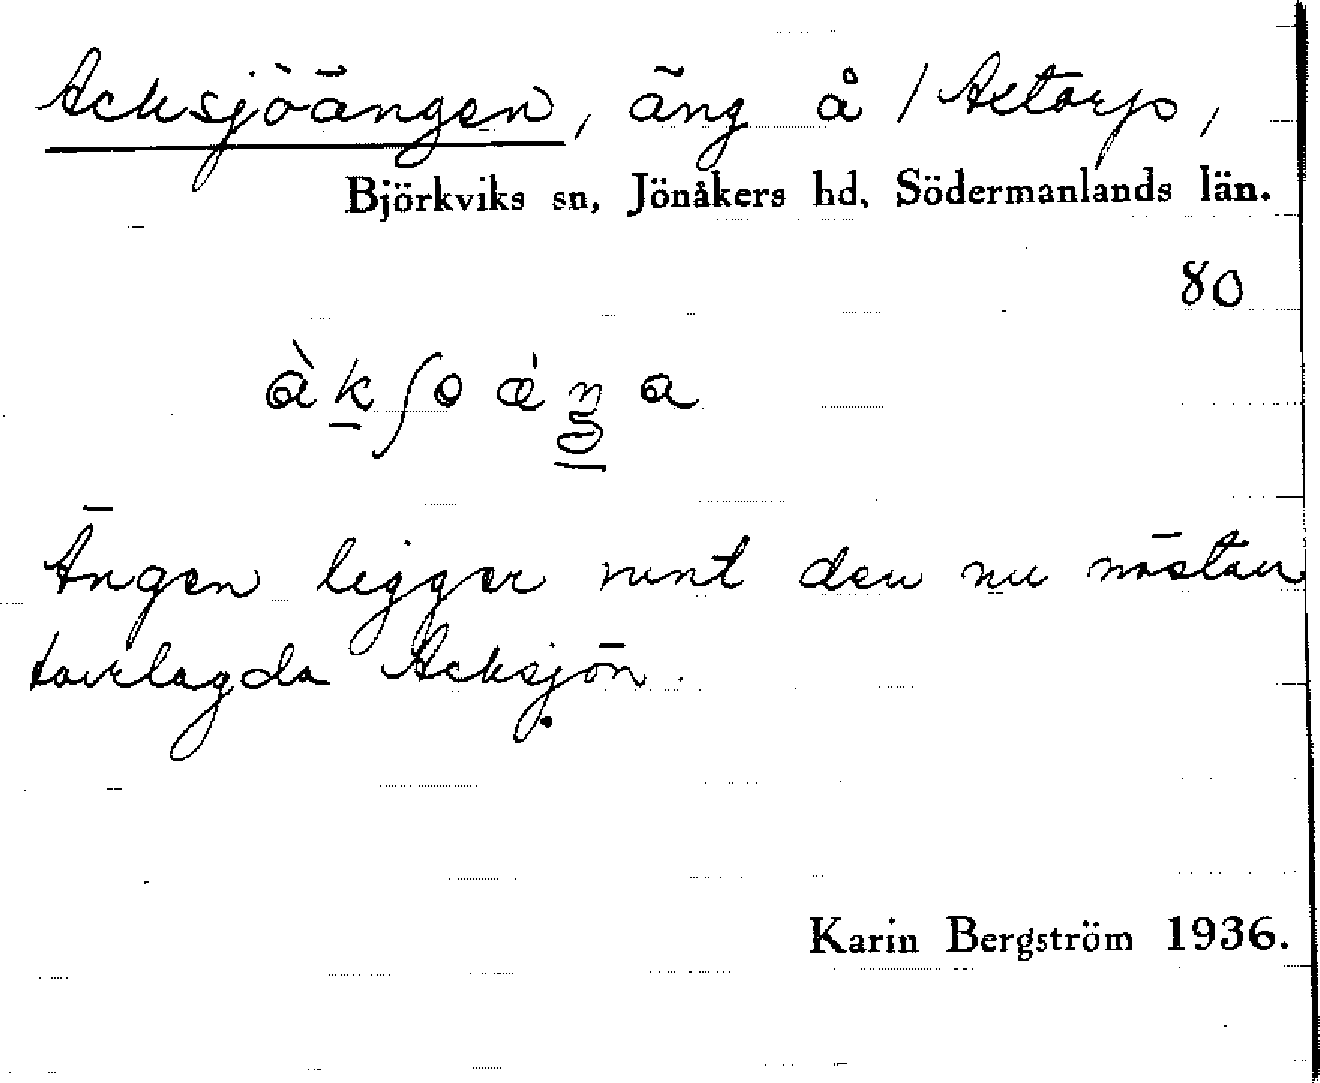 Acksjöängen, äng å / Axtorp,
Björkviks sn, Jönåkers hd, Södermanlands län.
80
àkʃo ǽŋa
Ängen ligger runt den nu nästan
torrlagda Acksjön.
Karin Bergström 1936.